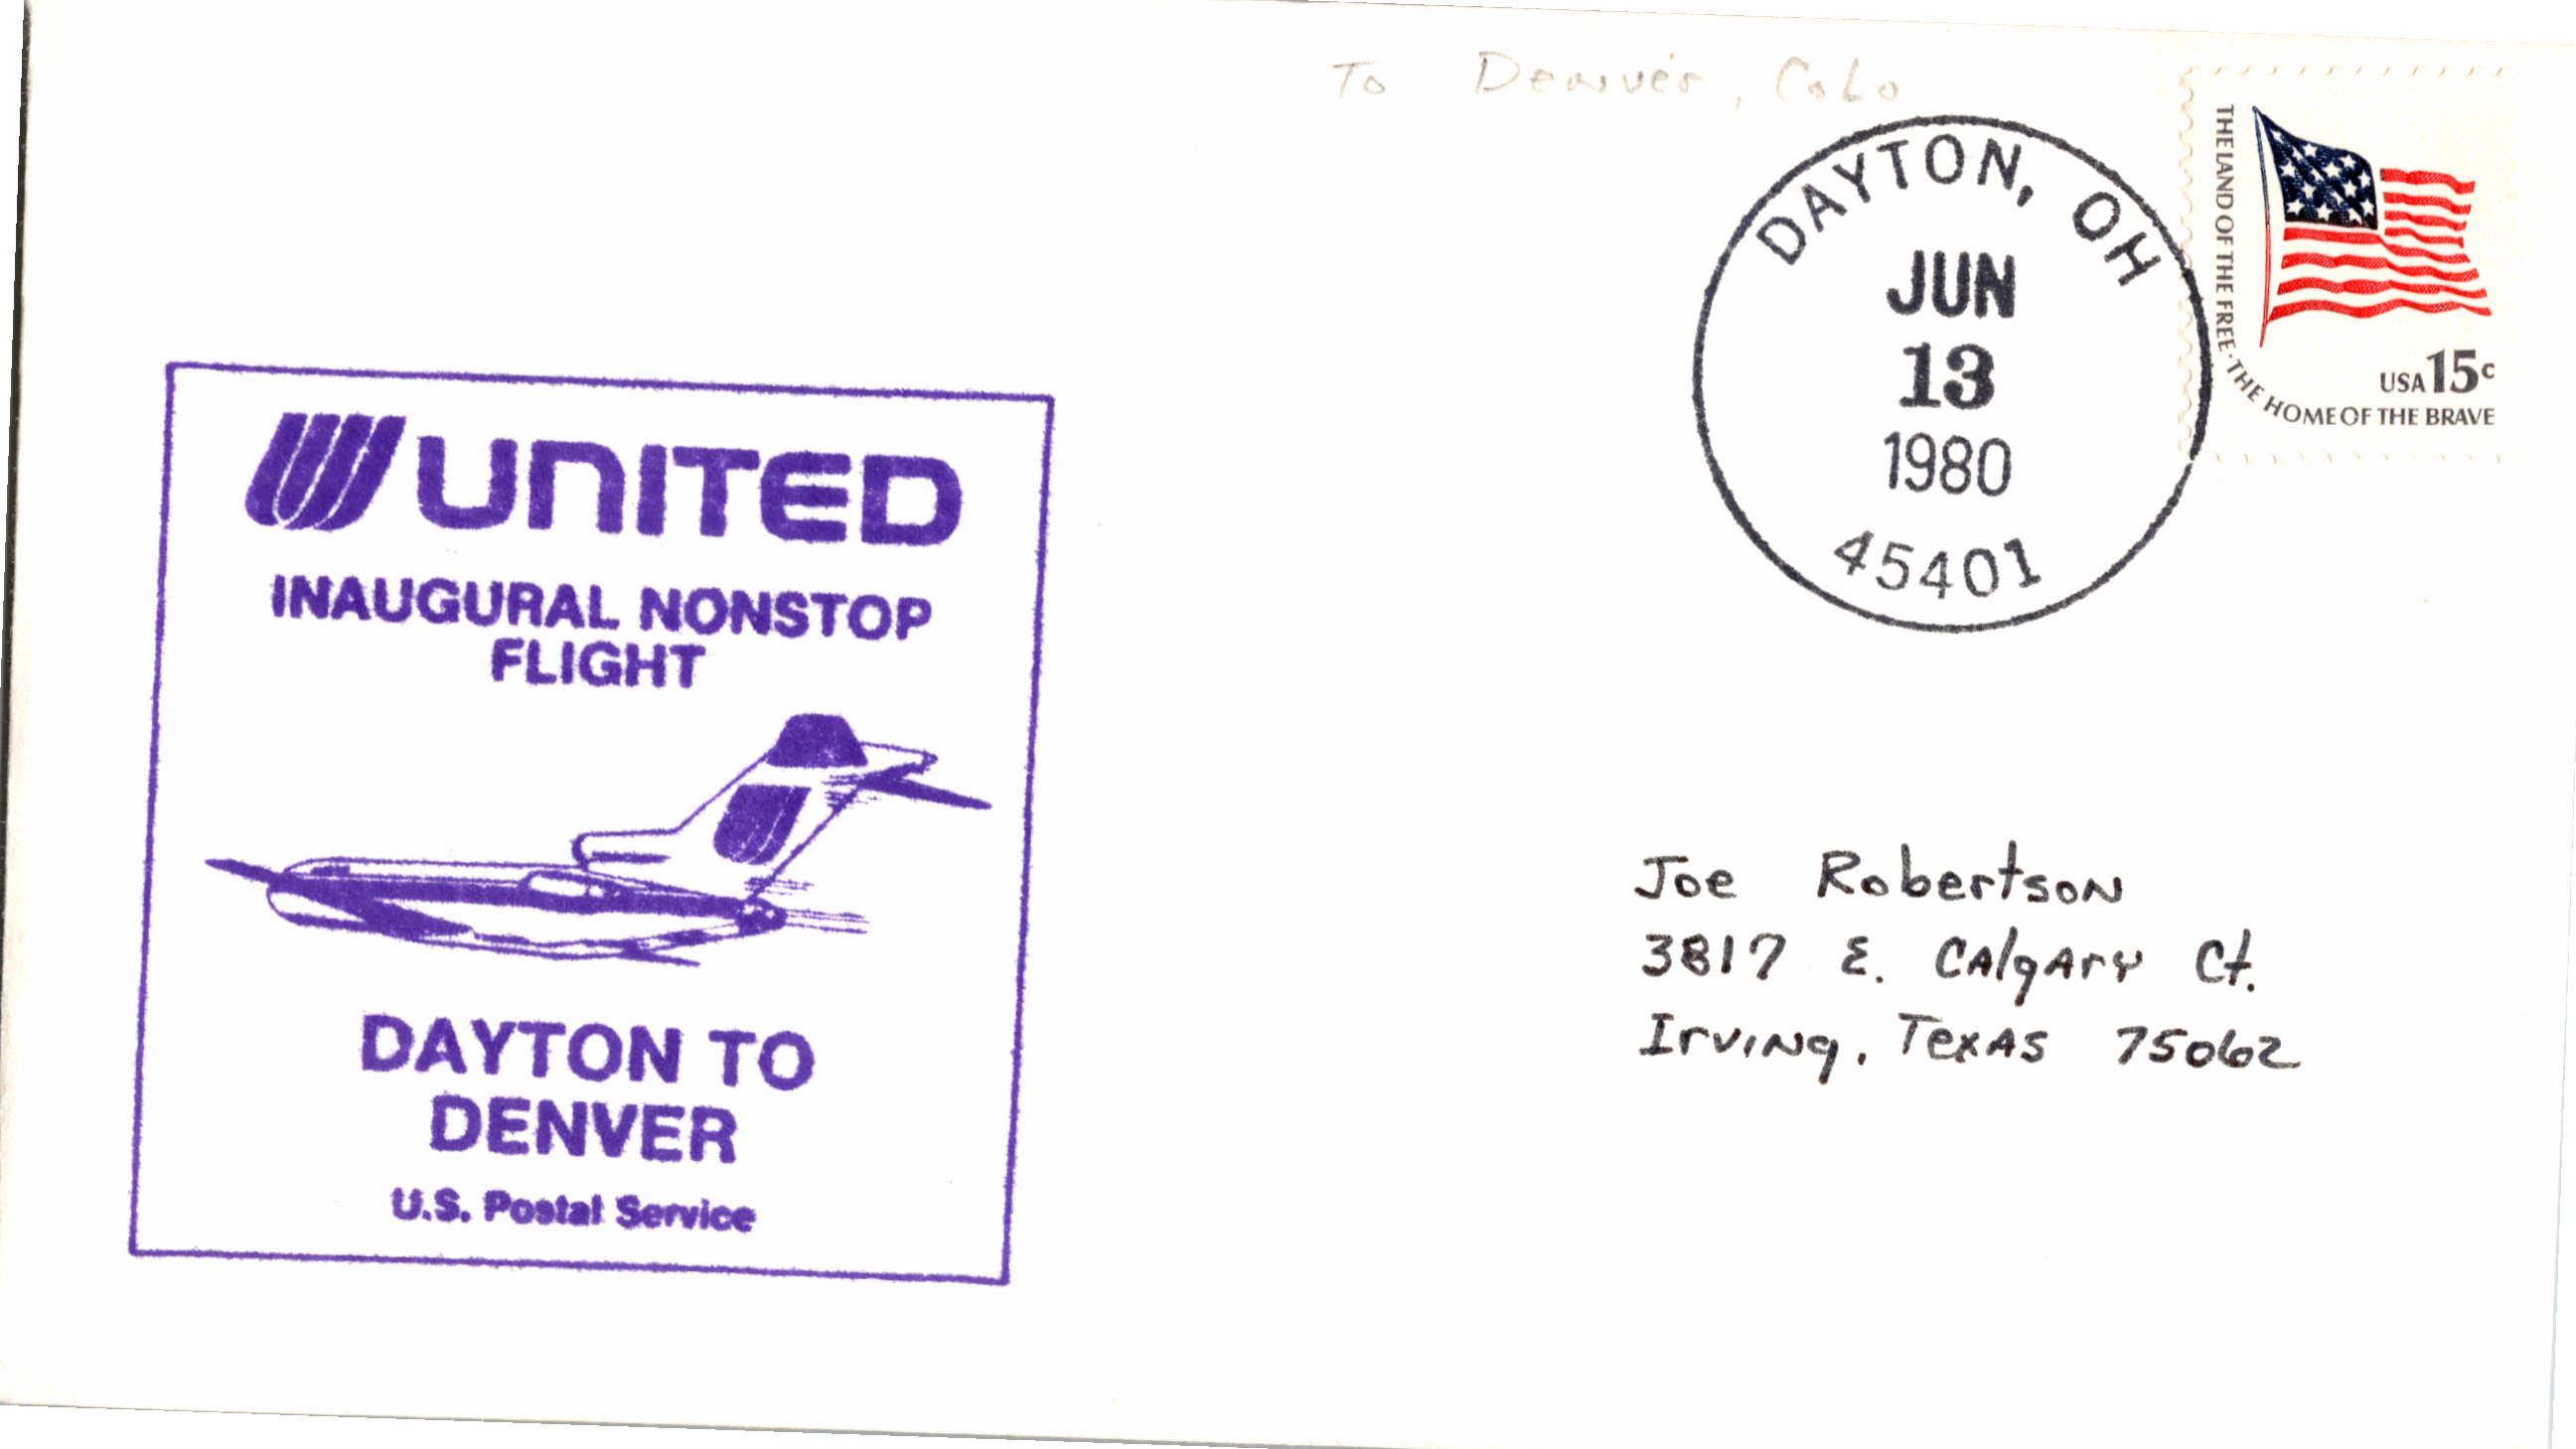 To Denver, Colo
DAYTON, OH
JUN
13
1980
45401
THE LAND OF THE FREE · THE HOME OF THE BRAVE
USA 15c
UNITED
INAUGURAL NONSTOP
FLIGHT
DAYTON TO
DENVER
U.S. Postal Service
Joe Robertson
3817 E. Calgary Ct.
Irving, Texas 75062